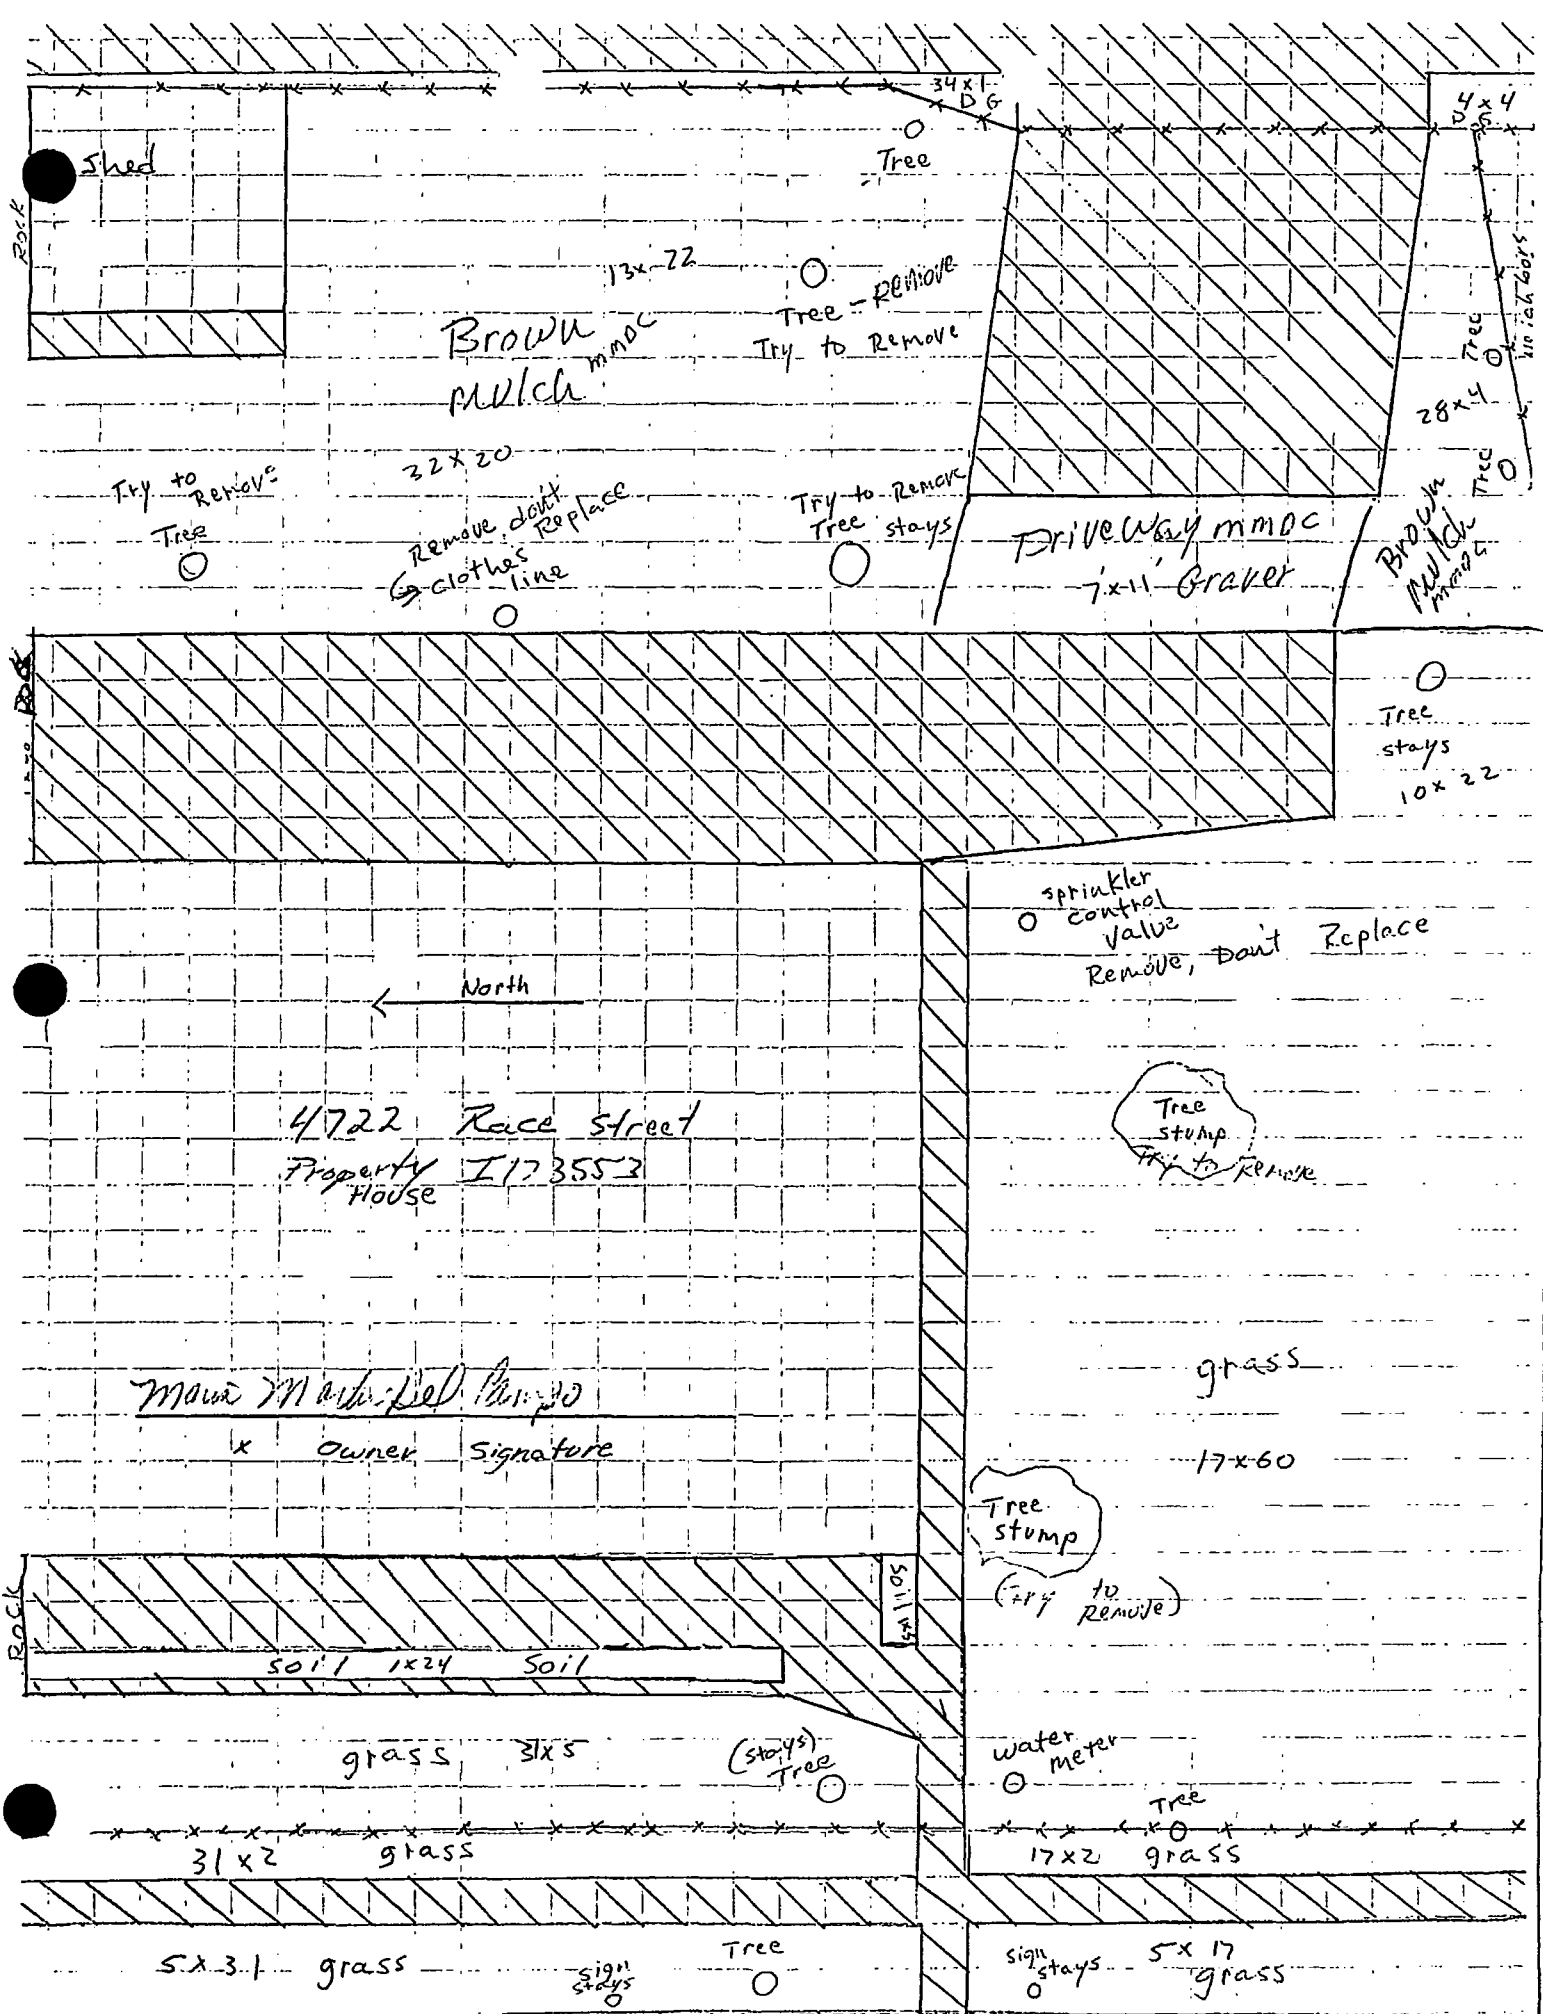 34x1
D G
4x4
Tree
Shed
Rock
13x22
Tree - Remove
Try to Remove
Brown
mulch mmDC
Tree
28x4
Tree
32x20
Try to
Remove
Tree
Remove, don't
Replace
clothes
line
Try to Remove
Tree stays
DriveWay mmDC
7'x11'
Brown
mulch
mmDC
Rock
Tree
stays
10x22
sprinkler
control
value
Remove, Don't Replace
North
4722 Race street
Property I173553
House
Tree
stump
Try to Remove
grass
17x60
x Owner Signature
Tree
stump
(Try to
Remove)
Rock
soil
soil 1x24 Soil
grass 31x5
(stays)
Tree
water
meter
Tree
31x2 grass
17x2 grass
5x31 grass
sign
stays
Tree
sign
stays
5x17
grass